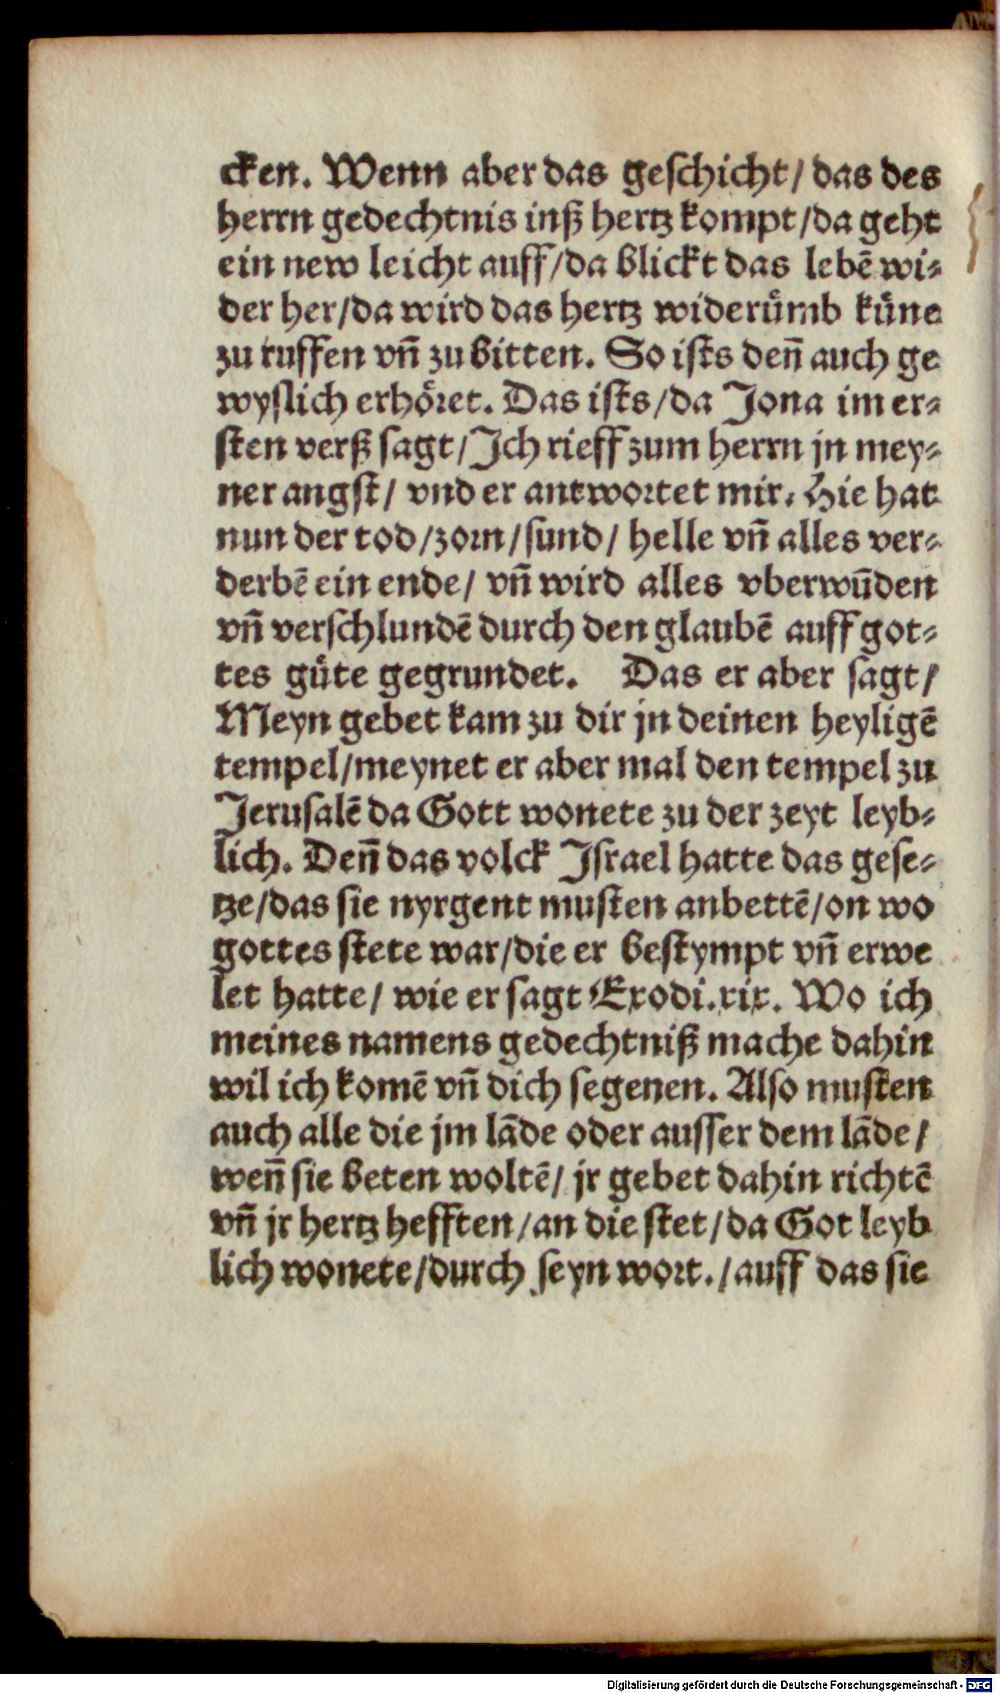 cken. Wenn aber das geschicht/ das des
herrn gedechtnis inß hertz kompt/da geht
ein new leicht auff/da blickt das lebē wi⸗
der her/da wird das hertz wideruͤmb kuͤne
zu ruffen vn̄ zu bitten. So ists den̄ auch ge
wyslich erhoͤret. Das ists/da Jona im er⸗
sten verß sagt/Ich rieff zum herrn jn mey⸗
ner angst/ vnd er antwortet mir. Hie hat
nun der tod/zorn/sund/ helle vn̄ alles ver⸗
derbē ein ende/ vn̄ wird alles vberwūden
vn̄ verschlundē durch den glaubē auff got⸗
tes guͤte gegrundet. Das er aber sagt/
Meyn gebet kam zu dir jn deinen heyligē
tempel/meynet er aber mal den tempel zu
Jerusalē da Gott wonete zu der zeyt leyb⸗
lich. Den̄ das volck Israel hatte das gese⸗
tze/das sie nyrgent musten anbettē/on wo
gottes stete war/die er bestympt vn̄ erwe
let hatte/ wie er sagt Exodi.xix. Wo ich
meines namens gedechtniß mache dahin
wil ich komē vn̄ dich segenen. Also musten
auch alle die jm lāde oder ausser dem lāde/
wen̄ sie beten woltē/ jr gebet dahin richtē
vn̄ jr hertz hefften/an die stet/da Got leyb
lich wonete/durch seyn wort./auff das sie
Digitalisierung gefördert durch die Deutsche Forschungsgemeinschaft - DFG